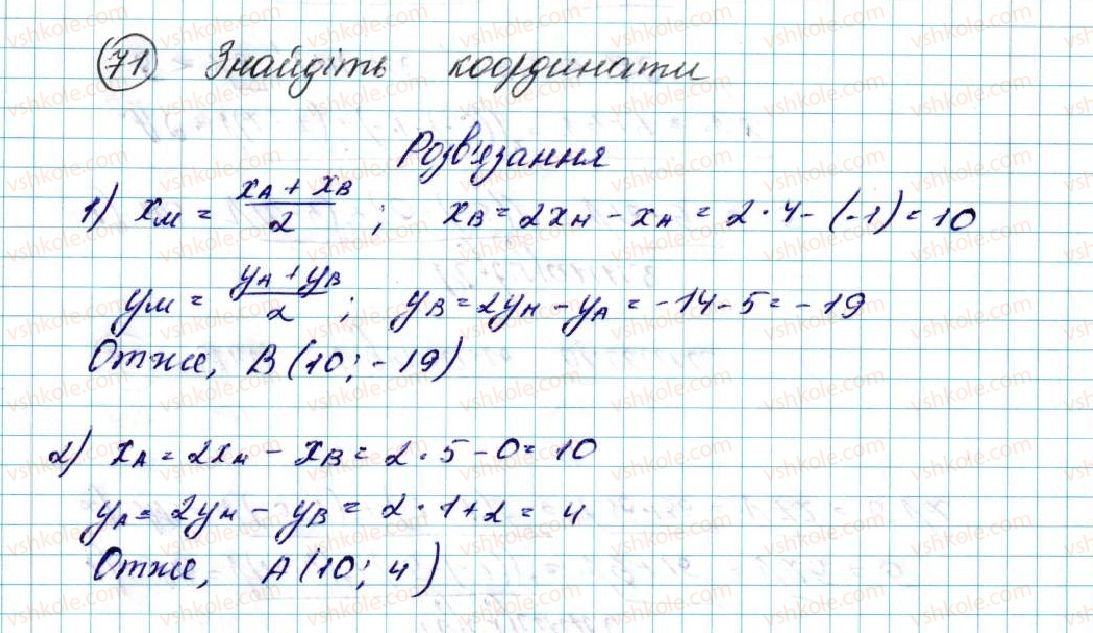 71 Знайдіть координати
Розв'язання
1) xм = (xA + xB)/2 ; xB = 2xм - xA = 2·4-(-1) = 10
yм = (yA + yB)/2 ; yB = 2yм - yA = -14-5 = -19
Отже, B(10; -19)
2) xA = 2xм - xB = 2·5-0 = 10
yA = 2yм - yB = 2·1+2 = 4
Отже, A(10; 4)
vshkole.com